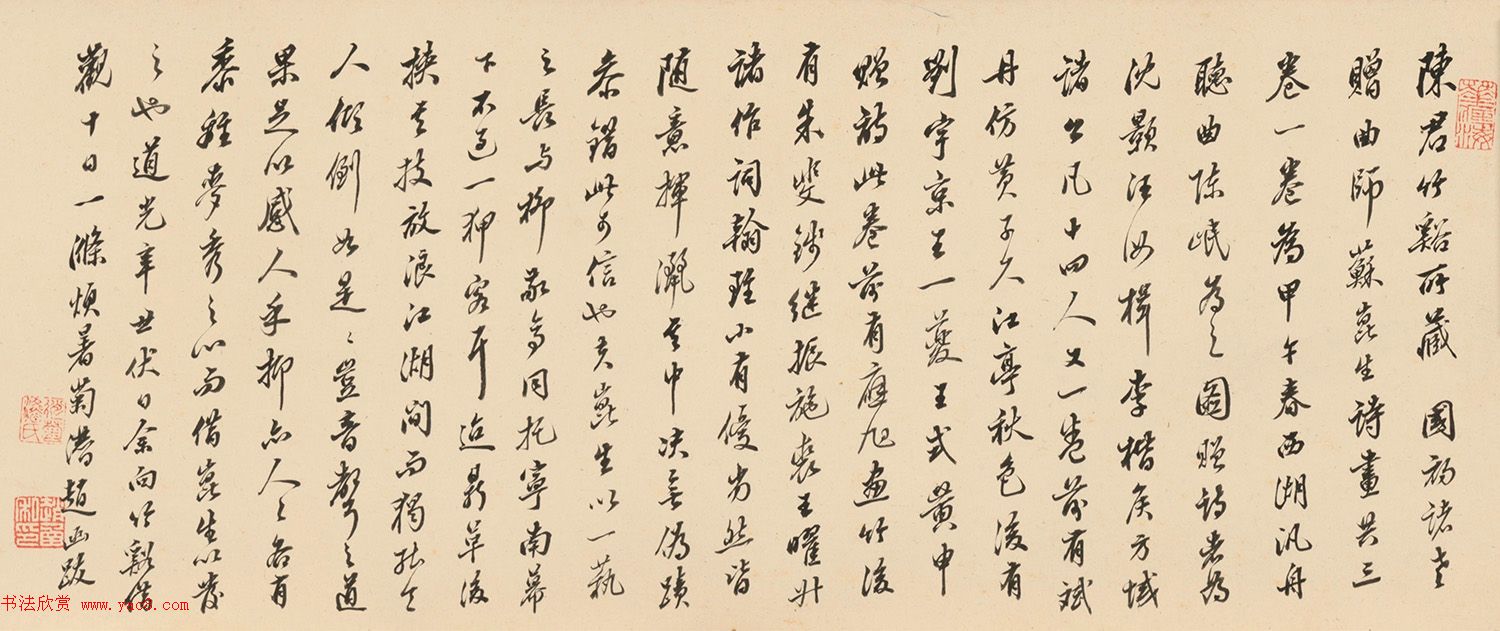 陳君竹谿所藏 國初諸老
贈曲師蘇崑生詩畫共三
卷一卷為甲午春西湖汎舟
聽曲陈岷為之圖贈詩者為
沈顥汪汝楫李楷侯方域
諸公凡十四人又一卷前有斌
丹仿黄子久江亭秋色後有
劉宇京王一蘷王式黄申
贈詩此卷前有應旭画竹後
有朱斐錢继振施裘王曜升
諸作詞翰雖小有優劣然皆
随意揮灑其中决無偽蹟
叅錯此可信也夫崑生以一藝
之長与柳敬亭同托寧南幕
下不过一狎客耳迨鼎革後
挾其技放浪江湖間而猶能令
人傾倒如是是豈音聲之道
果足以感人乎抑亦人人各有
黍離麥秀之心而借崑生以發
之也道光辛丑伏日余向竹谿借
觀十日一滌煩暑菊潛趙函跋
书法欣赏 www.yac8.com